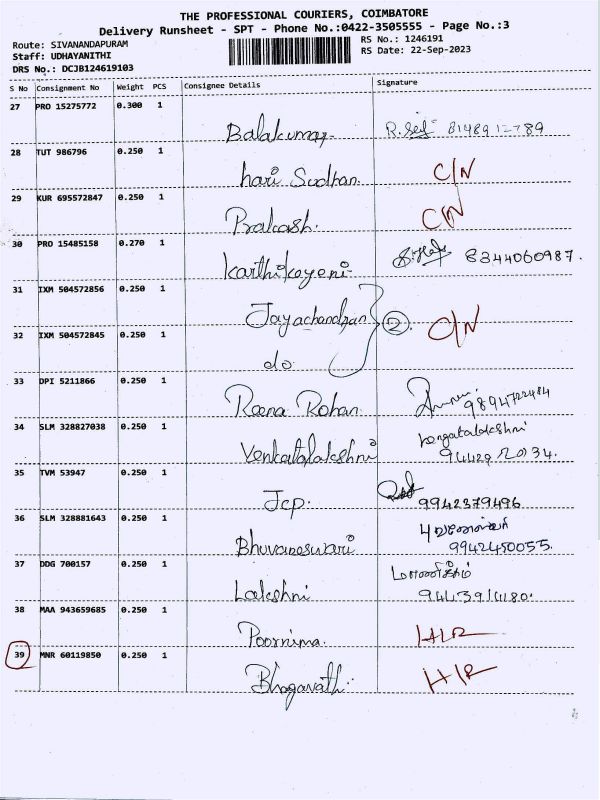 THE PROFESSIONAL COURIERS, COIMBATORE
Delivery Runsheet - SPT - Phone No.:0422-3505555 - Page No.:3
Route: SIVANANDAPURAM RS No.: 1246191
Staff: UDHAYANITHI RS Date: 22-Sep-2023
DRS No.: DCJB124619103
S No Consignment No Weight PCS Consignee Details Signature
27 PRO 15275772 0.300 1
Balakumar
28 TUT 986796 0.250 1
hari Sudhan C/N
29 KUR 695572847 0.250 1
Prakash. C/N
30 PRO 15485158 0.270 1
Karthikeyeni 8344060987.
31 IXM 504572856 0.250 1
Jayachandran 2 C/N
32 IXM 504572845 0.250 1
do
33 DPI 5211866 0.250 1
Reena Rohan
34 SLM 328827038 0.250 1
Venkatalakshmi
35 TVM 53947 0.250 1
Jcp. 9942379496
36 SLM 328881643 0.250 1
Bhuvaneswari 9942450055.
37 DDG 700157 0.250 1
Lakshmi
38 MAA 943659685 0.250 1
Poornima.
39 MNR 60119850 0.250 1
Bhagavathi